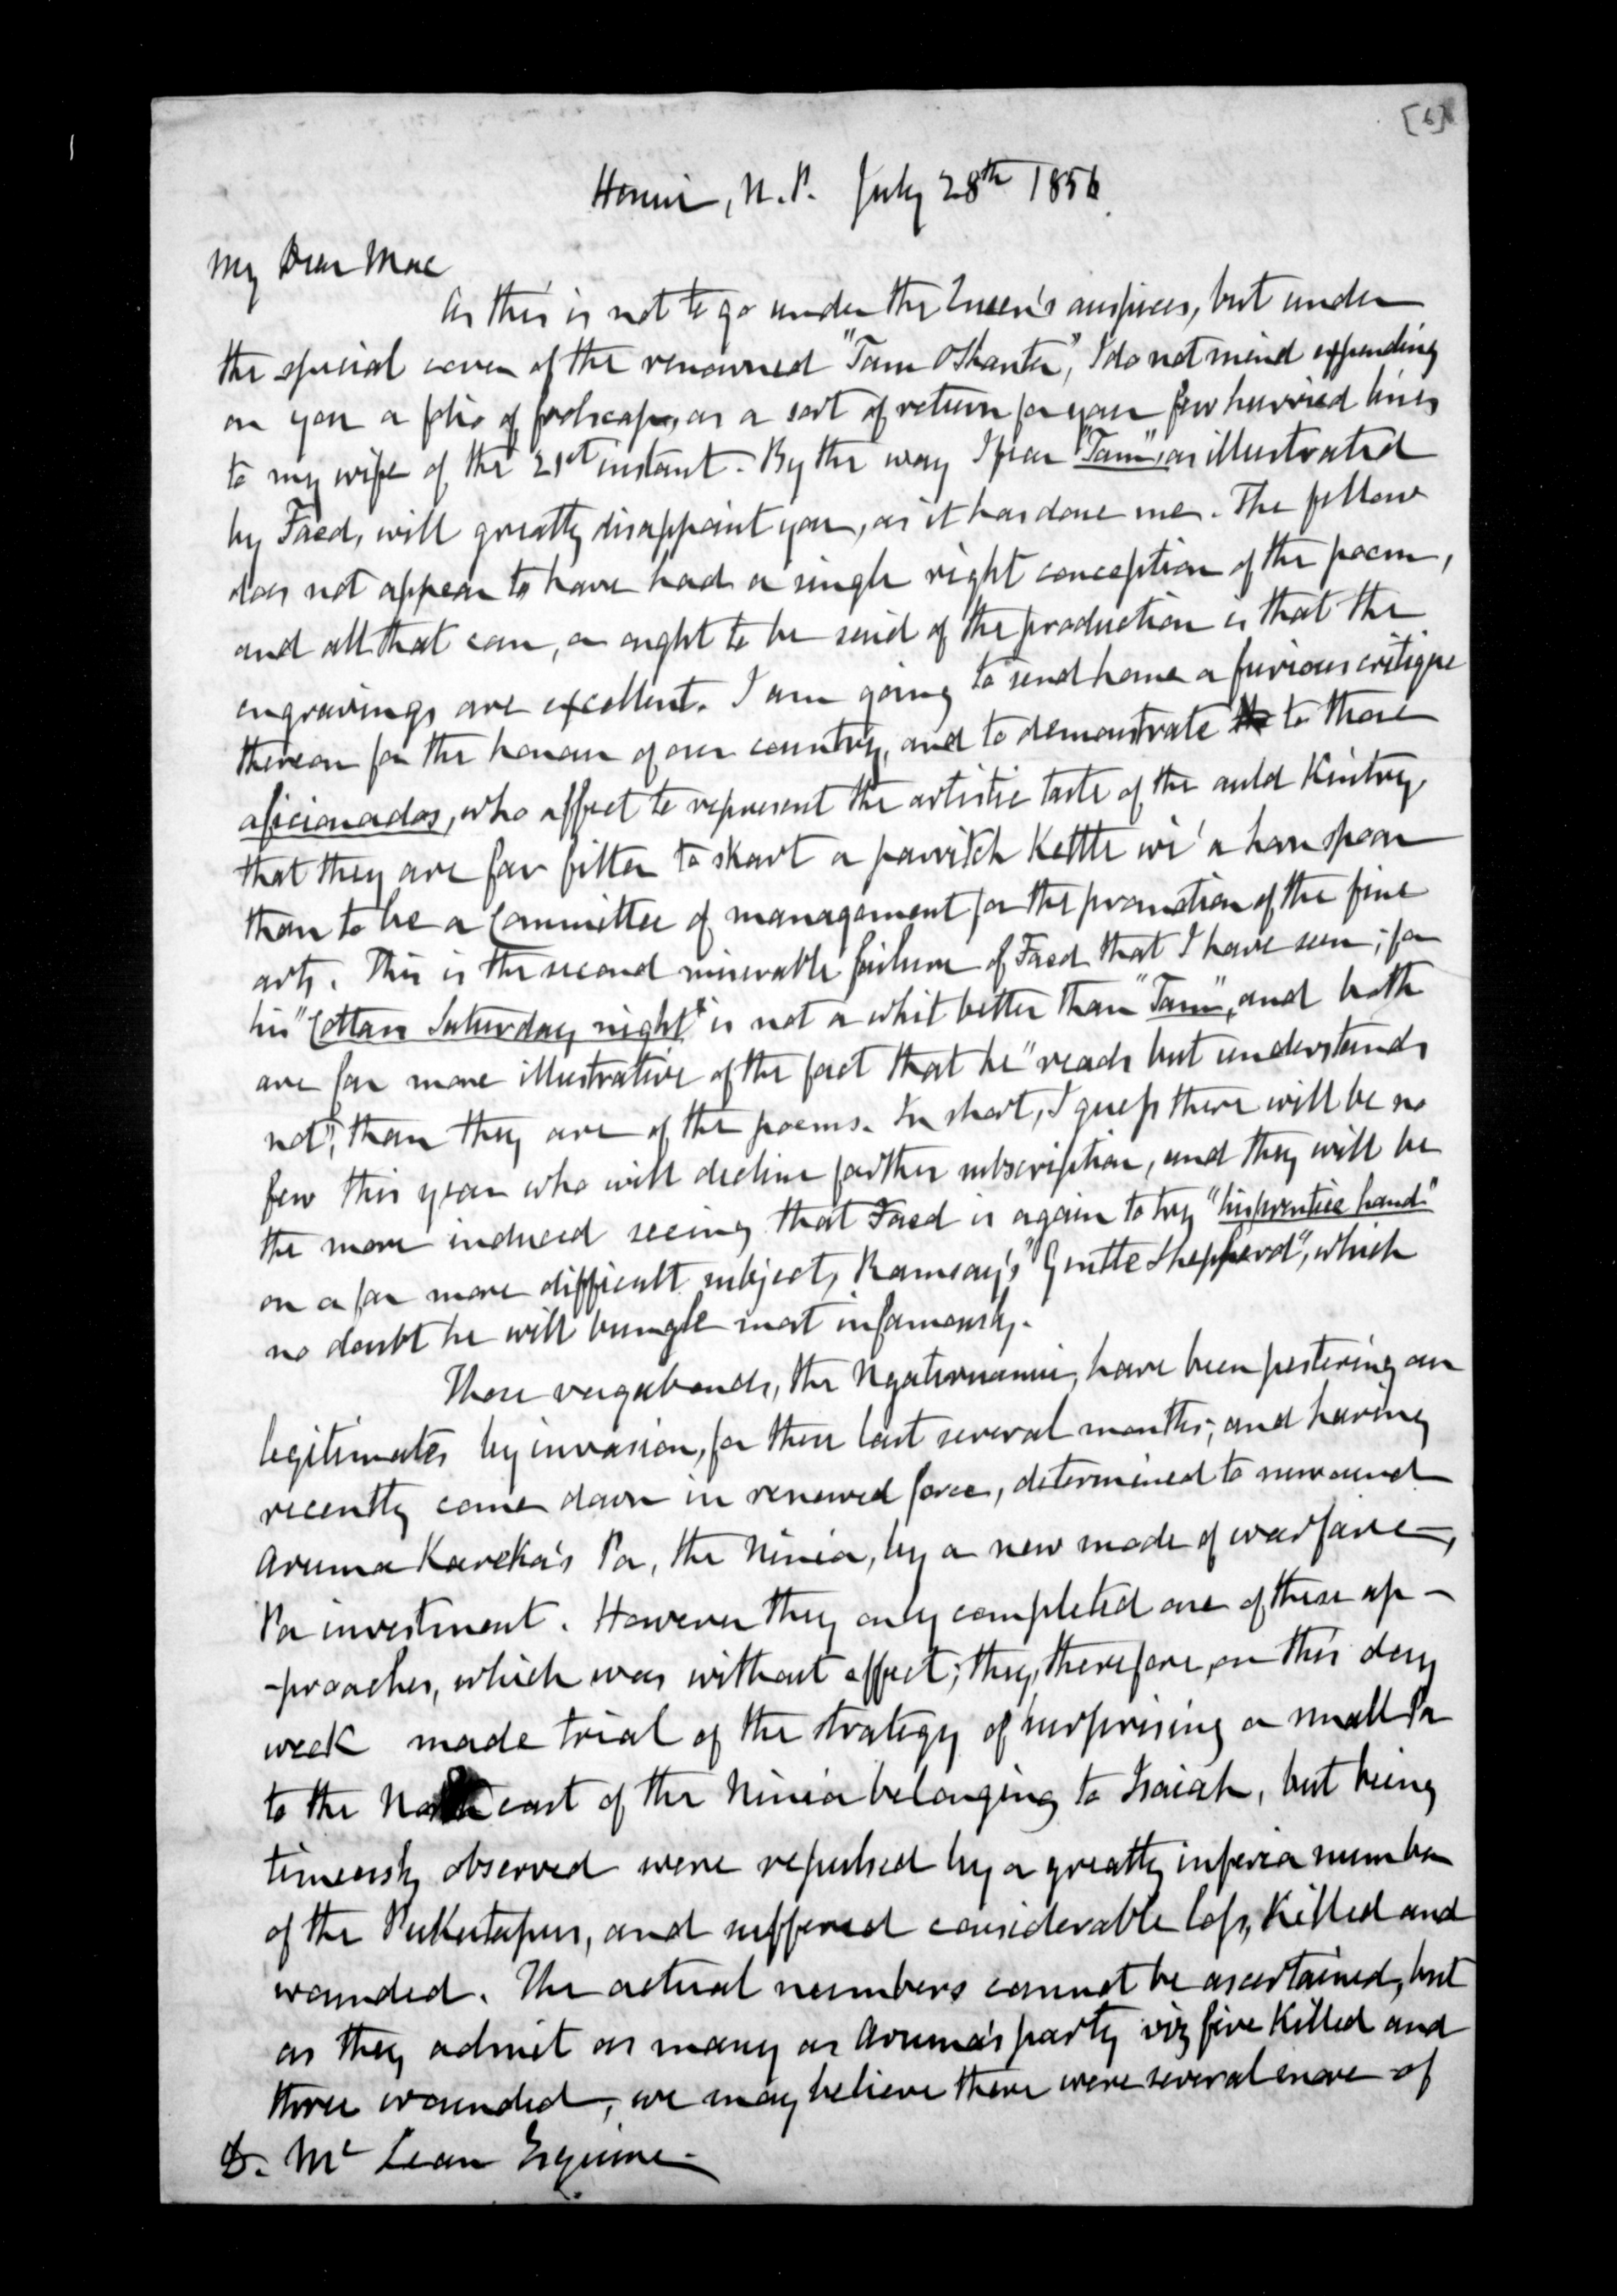 [6]
Henui, N.P. July 28th 1856.
My Dear Mac
As this is not to go under the Queen's auspices, but under
the special cover of the renowned "Tam O'Shanter", I do not mind expending
on you a folio of foolscap, as a sort of return for your few hurried lines
to my wife of the 21st instant. By the way I fear "Tam", as illustrated
by Faed, will greatly disappoint you, as it has done me. The fellow
does not appear to have had a single right conception of the poem,
and all that can, or ought to be said of the production is that the
engravings are excellent. I am going to send home a furious critique
thereon for the honour of our country, and to demonstrate to those
aficionados, who affect to represent the artistic taste of the auld Kintry,
that they are far fitter to skart a parritch Kettle wi' a horn spoon
than to be a Committee of management for the promotion of the fine
arts. This is the second miserable failure of Faed that I have seen; for
his "Cottars Saturday night" is not a whit better than "Tam", and both
are far more illustrative of the fact that he "reads but understands
not", than they are of the poems. In short, I guess there will be no
few this year who will decline farther subscription, and they will be
the more induced seeing that Faed is again to try "his prentice hand"
on a far more difficult subject, Ramsay's "Gentle Shepherd", which
no doubt he will bungle most infamously.
Those vagabonds, the Ngatiruanui, have been pestering our
legitimates by invasion, for these last several months; and having
recently come down in renewed force, determined to surround
Arama Karaka's Pa, the Ninia, by a new mode of warfare,
Pa investment. However they only completed one of these ap-
-proaches, which was without effect; they, therefore, on this day
week made trial of the strategy of surprising a small Pa
to the North east of the Ninia belonging to Isaiah, but being
timeously observed were repulsed by a greatly inferior number
of the Puketapus, and suffered considerable loss, Killed and
wounded. The actual numbers cannot be ascertained, but
as they admit as many as Arama's party viz five Killed and
three wounded, we may believe there were several more of
D. McLean Esquire.